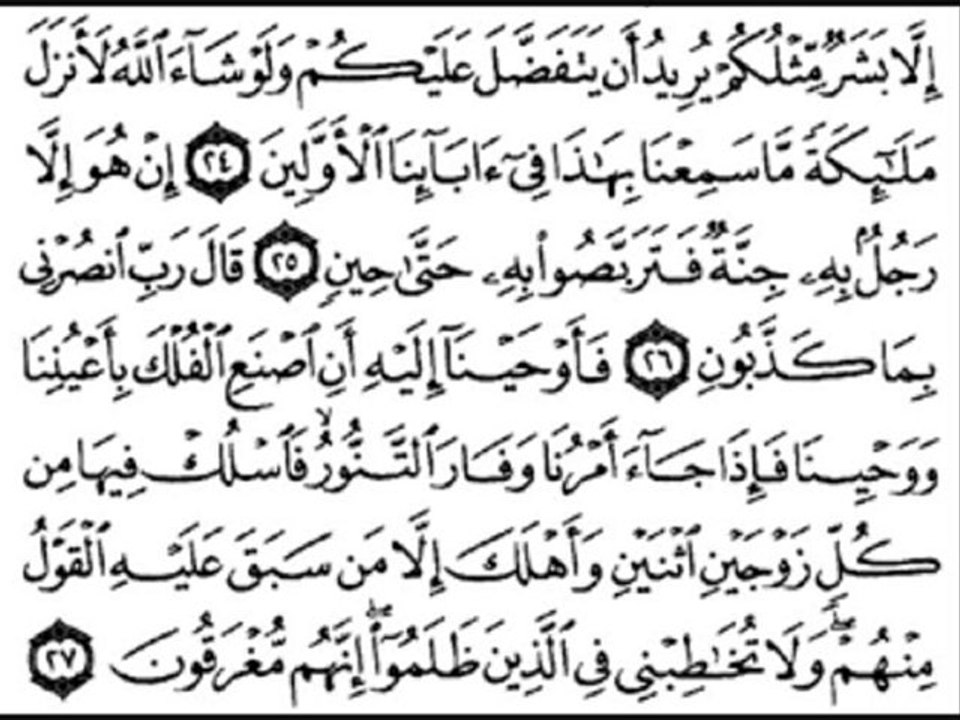 إِلَّا بَشَرٌ مِّثْلُكُمْ يُرِيدُ أَن يَتَفَضَّلَ عَلَيْكُمْ وَلَوْ شَآءَ ٱللَّهُ لَأَنزَلَ
مَلَـٰٓئِكَةً مَّا سَمِعْنَا بِهَـٰذَا فِىٓ ءَابَآئِنَا ٱلْأَوَّلِينَ ٢٤ إِنْ هُوَ إِلَّا
رَجُلٌۢ بِهِۦ جِنَّةٌ فَتَرَبَّصُوا۟ بِهِۦ حَتَّىٰ حِينٍ ٢٥ قَالَ رَبِّ ٱنصُرْنِى
بِمَا كَذَّبُونِ ٢٦ فَأَوْحَيْنَآ إِلَيْهِ أَنِ ٱصْنَعِ ٱلْفُلْكَ بِأَعْيُنِنَا
وَوَحْيِنَا فَإِذَا جَآءَ أَمْرُنَا وَفَارَ ٱلتَّنُّورُ ۙ فَٱسْلُكْ فِيهَا مِن
كُلٍّ زَوْجَيْنِ ٱثْنَيْنِ وَأَهْلَكَ إِلَّا مَن سَبَقَ عَلَيْهِ ٱلْقَوْلُ
مِنْهُمْ ۖ وَلَا تُخَـٰطِبْنِى فِى ٱلَّذِينَ ظَلَمُوٓا۟ ۖ إِنَّهُم مُّغْرَقُونَ ٢٧